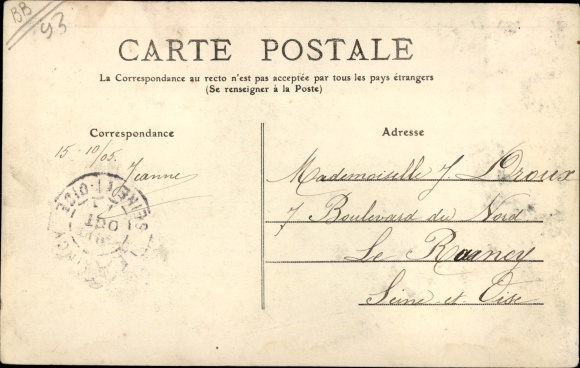 BB
93
CARTE POSTALE
La Correspondance au recto n'est pas acceptée par tous les pays étrangers
(Se renseigner à la Poste)
Correspondance
15-10/05.
Jeanne
SEINE-ET-OISE
OCT
Adresse
Mademoiselle J. Droux
7 Boulevard du Nord
Le Raincy
Seine et Oise